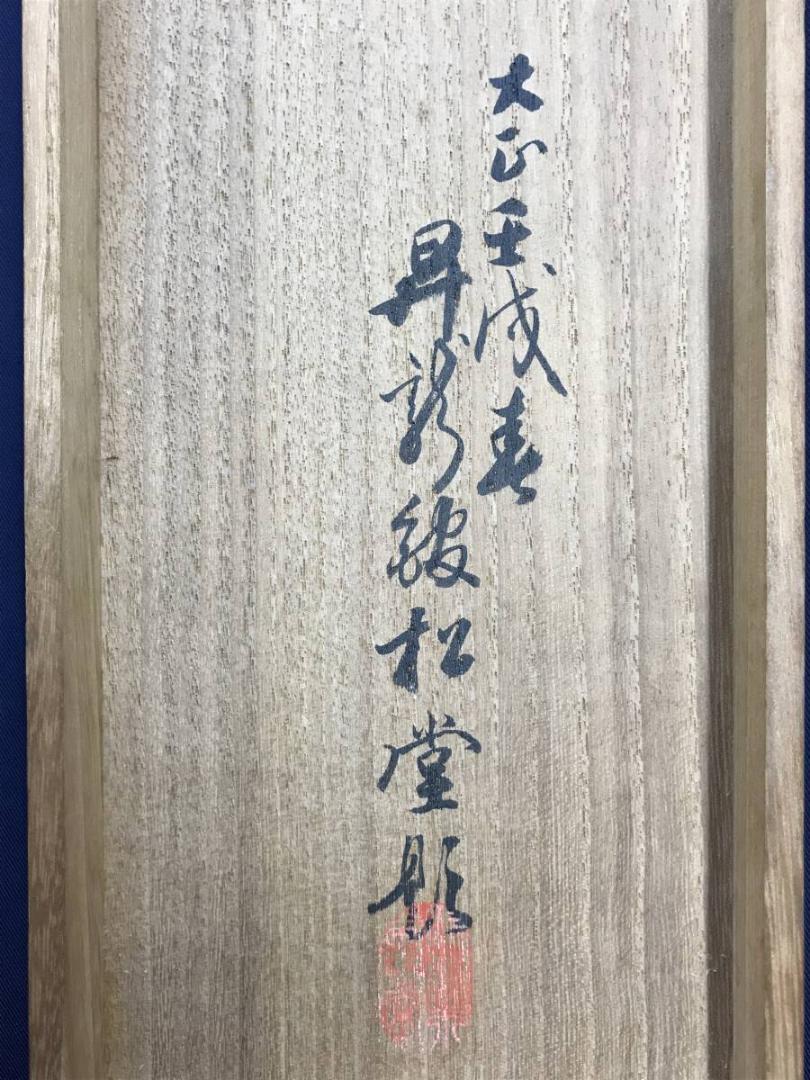 大正壬戌春
昇龍松堂題